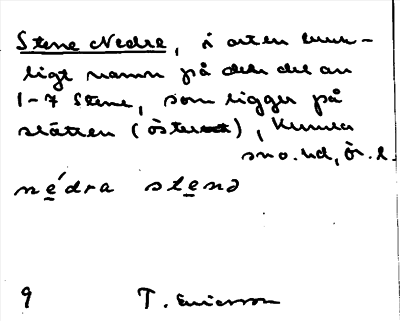 Stene Nedre, i orten van-
ligt namn på den del av
1-7 Stene, som ligger på
slätten (öster), Kumla
sn o. hd, Ör. l.
nédra stenə
9 T. Ericsson